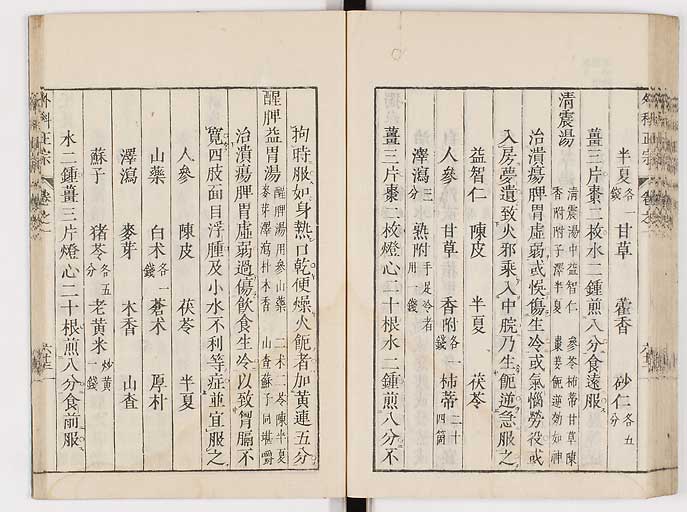 半夏各一錢 甘草 藿香 砂仁各五分
薑三片棗二枚水二鍾煎八分食遠服
清震湯 清震湯中益智仁 參苓柿蒂甘草陳
香附附子澤半夏 棗姜呃逆効如神
治潰瘍脾胃虛弱或悞傷生冷或氣惱勞役或
入房夢遺致火邪乘入中脘乃生呃逆急服之
益智仁 陳皮 半夏 茯苓
人參 甘草 香附各一錢 柿蒂二十四箇
澤瀉三分 熟附手足冷者用一錢
薑三片棗二枚燈心二十根水二鍾煎八分不
拘時服如身熱口乾便燥火呃者加黃連五分
醒脾益胃湯 醒脾湯用參山藥 二朮二苓陳半夏
麥芽澤瀉朴木香 山查蘇子同堪嚼
治潰瘍脾胃虛弱過傷飲食生冷以致胃膈不
寬四肢面目浮腫及小水不利等症並宜服之
人參 陳皮 茯苓 半夏
山藥 白朮各一錢 蒼朮 厚朴
澤瀉 麥芽 木香 山查
蘇子 猪苓各五分 老黃米炒黃一錢
水二鍾薑三片燈心二十根煎八分食前服
外科正宗